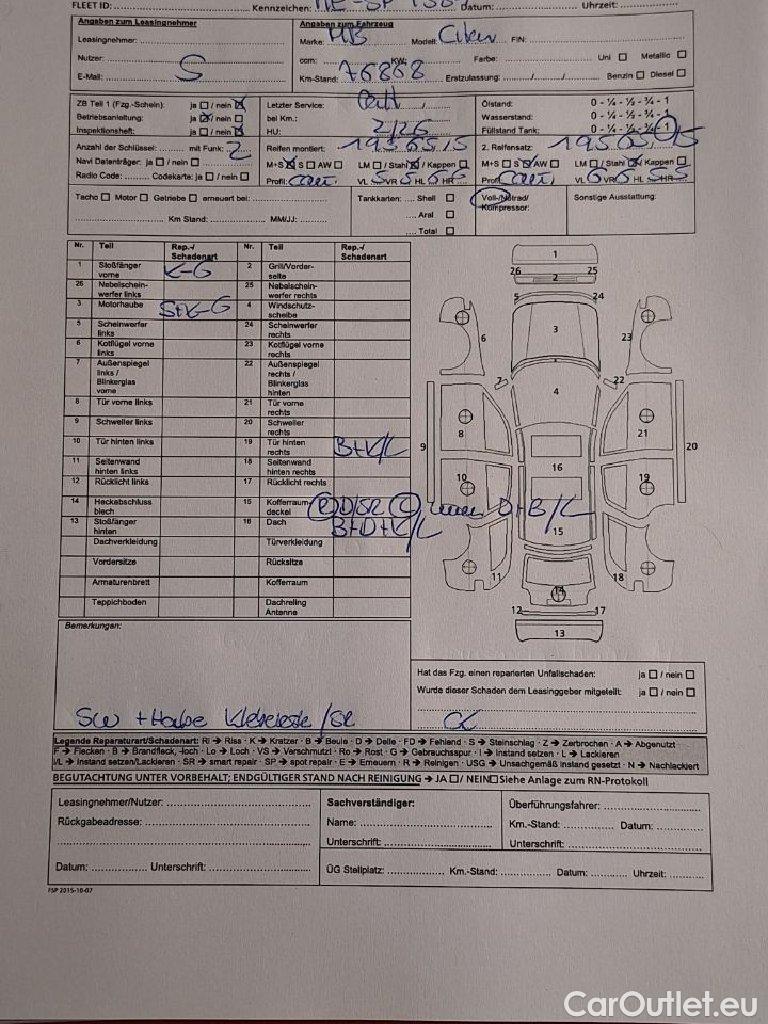 FLEET ID: Kennzeichen: Datum: Uhrzeit:
Angaben zum Leasingnehmer
Leasingnehmer:
Nutzer:
E-Mail: S
Angaben zum Fahrzeug
Marke: MB Modell: Citan FIN:
ccm: KW: Farbe: Uni ☐ Metallic ☐
Km-Stand: 76868 Erstzulassung: / / Benzin ☐ Diesel ☐
ZB Teil 1 (Fzg.-Schein): ja ☐ / nein ☒
Betriebsanleitung: ja ☒ / nein ☐
Inspektionsheft: ja ☐ / nein ☒
Letzter Service:
bei Km.:
HU: 2/26
Ölstand: 0 - ¼ - ½ - ¾ - 1
Wasserstand: 0 - ¼ - ½ - ¾ - 1
Füllstand Tank: 0 - ¼ - ½ - ¾ - 1
Anzahl der Schlüssel: mit Funk: 2
Navi Datenträger: ja ☐ / nein ☐
Radio Code: Codekarte: ja ☐ / nein ☐
Reifen montiert: 195 65, 15
M+S ☒ S ☐ AW ☐ LM ☐ / Stahl ☒ / Kappen ☐
Profil: Conti VL 5 VR 5 HL 6 HR 6
2. Reifensatz: 195 65, 15
M+S ☐ S ☒ AW ☐ LM ☐ / Stahl ☒ / Kappen ☐
Profil: Conti VL 6 VR 6 HL 5 HR 5
Tacho ☐ Motor ☐ Getriebe ☐ erneuert bei:
Km Stand: MM/JJ:
Tankkarten: Shell ☐
Aral ☐
Total ☐
Voll-/Notrad/
Kompressor:
Sonstige Ausstattung:
Nr. Teil Rep.-/Schadenart Nr. Teil Rep.-/Schadenart
1 Stoßfänger vorne K-G 2 Grill/Vorderseite
26 Nebelscheinwerfer links 25 Nebelscheinwerfer rechts
3 Motorhaube St+K-G 4 Windschutzscheibe
5 Scheinwerfer links 24 Scheinwerfer rechts
6 Kotflügel vorne links 23 Kotflügel vorne rechts
7 Außenspiegel links / Blinkerglas vorne 22 Außenspiegel rechts / Blinkerglas hinten
8 Tür vorne links 21 Tür vorne rechts
9 Schweller links 20 Schweller rechts
10 Tür hinten links 19 Tür hinten rechts B+K/L
11 Seitenwand hinten links 18 Seitenwand hinten rechts
12 Rücklicht links 17 Rücklicht rechts
14 Heckabschlussblech 15 Kofferraumdeckel R D/SR L D+B/L
13 Stoßfänger hinten 16 Dach B+D+K/L
Dachverkleidung Türverkleidung
Vordersitze Rücksitze
Armaturenbrett Kofferraum
Teppichboden Dachreling Antenne
1
26 2 25
5 24
6 3 23
7 4 22
9 8 21 20
10 16 19
15
11 14 18
12 17
13
Bemerkungen:
SW + Haube Klebereste/SR
Hat das Fzg. einen reparierten Unfallschaden: ja ☐ / nein ☐
Wurde dieser Schaden dem Leasinggeber mitgeteilt: ja ☐ / nein ☐
Legende Reparaturart/Schadenart: Ri → Riss · K → Kratzer · B → Beule · D → Delle · FD → Fehlend · S → Steinschlag · Z → Zerbrochen · A → Abgenutzt ·
F → Flecken · B → Brandfleck, -loch · Lo → Loch · VS → Verschmutzt · Ro → Rost · G → Gebrauchsspur · I → Instand setzen · L → Lackieren
I/L → Instand setzen/Lackieren · SR → smart repair · SP → spot repair · E → Erneuern · R → Reinigen · USG → Unsachgemäß instand gesetzt · N → Nachlackiert
BEGUTACHTUNG UNTER VORBEHALT; ENDGÜLTIGER STAND NACH REINIGUNG → JA ☐ / NEIN ☐ Siehe Anlage zum RN-Protokoll
Leasingnehmer/Nutzer:
Rückgabeadresse:
Datum: Unterschrift:
Sachverständiger:
Name:
Unterschrift:
Überführungsfahrer:
Km.-Stand: Datum:
Unterschrift:
ÜG Stellplatz: Km.-Stand: Datum: Uhrzeit:
FSP 2015-10-07
CarOutlet.eu